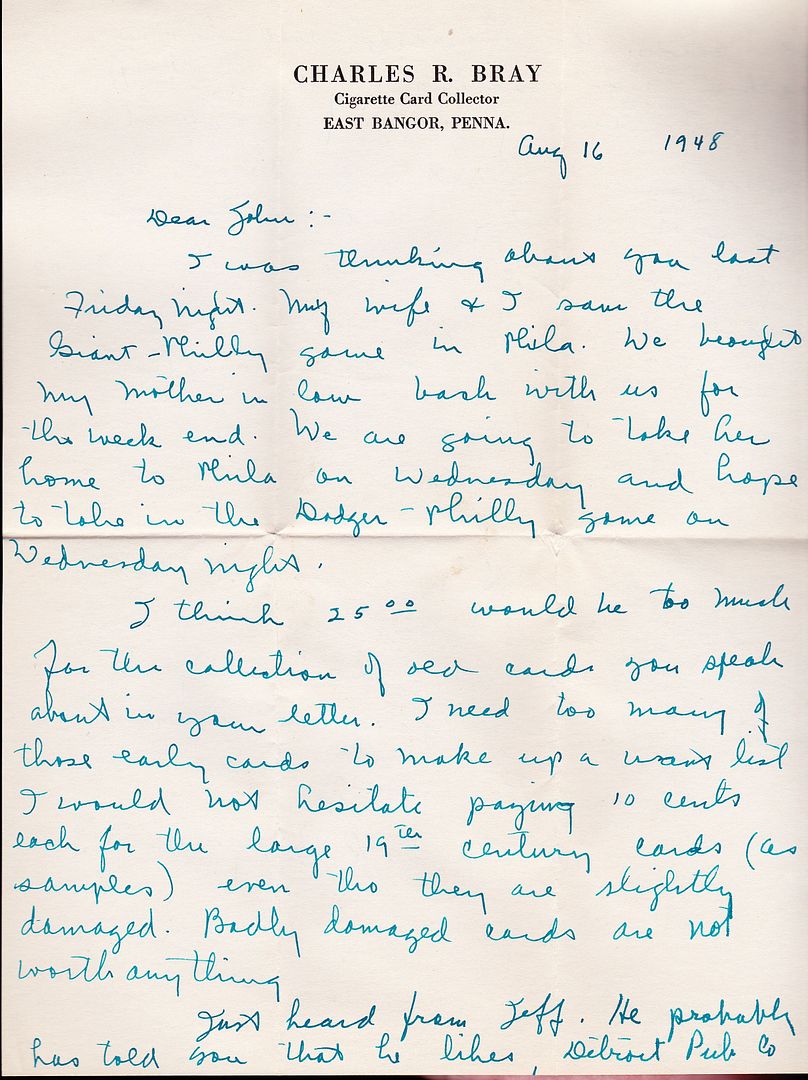 CHARLES R. BRAY
Cigarette Card Collector
EAST BANGOR, PENNA.
Aug 16 1948
Dear John :-
I was thinking about you last
Friday night. My wife & I saw the
Giant - Philly game in Phila. We brought
my mother in law back with us for
the week end. We are going to take her
home to Phila on Wednesday and hope
to take in the Dodger - Philly game on
Wednesday night.
I think 25 00 would be too much
for the collection of old cards you speak
about in your letter. I need too many of
those early cards to make up a want list
I would not hesitate paying 10 cents
each for the large 19th century cards (as
samples) even tho they are slightly
damaged. Badly damaged cards are not
worth anything
Just heard from Jeff. He probably
has told you that he likes, Detroit Pub Co